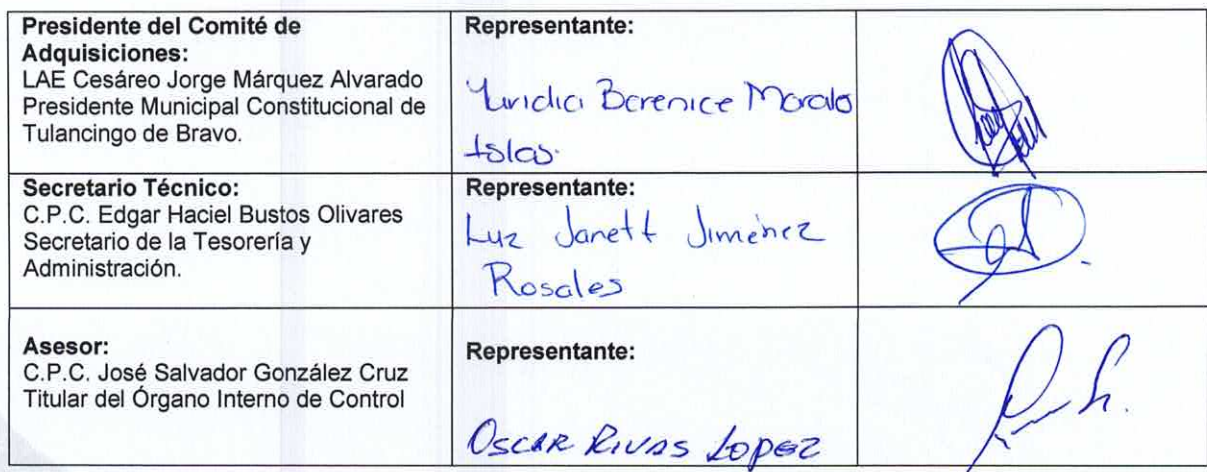 Presidente del Comité de
Adquisiciones:
LAE Cesáreo Jorge Márquez Alvarado
Presidente Municipal Constitucional de
Tulancingo de Bravo.
Representante:
Yuridia Berenice Morales
Islas.
Secretario Técnico:
C.P.C. Edgar Haciel Bustos Olivares
Secretario de la Tesorería y
Administración.
Representante:
Luz Janett Jiménez
Rosales
Asesor:
C.P.C. José Salvador González Cruz
Titular del Órgano Interno de Control
Representante:
OSCAR RIVAS LOPEZ